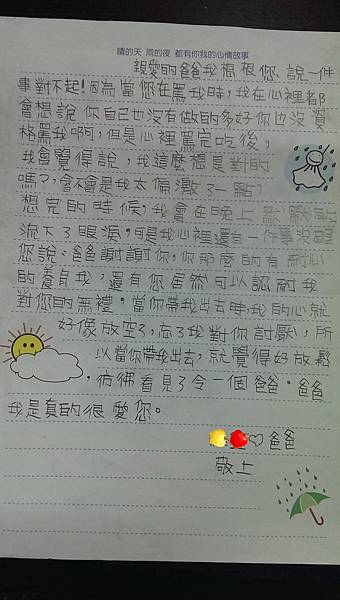 晴的天 雨的夜 都有你我的心情故事
親愛的爸爸我想跟您、說一件
事對不起!因為當您在罵我時,我在心裡都
會想說 你自己也沒有做的多好你也沒資
格罵我啊,但是心裡罵完吃後,
我會覺得說,我這麼想是對的
嗎?,會不會是我太偏激了一點,
想完的時候,我會在晚上默默
流下了眼淚。可是我心裡還有一件事
您說:爸爸謝謝你,你那麼的有耐心
的養育我,還有您居然可以認耐我
對您的無禮。當你帶我出去時,我的心就
好像放空了,忘了我對你討厭,所
以當你帶我出去,就覺得好放鬆
,彷彿看見了令一個爸爸。爸爸
我是真的很愛您。
♡爸爸
敬上